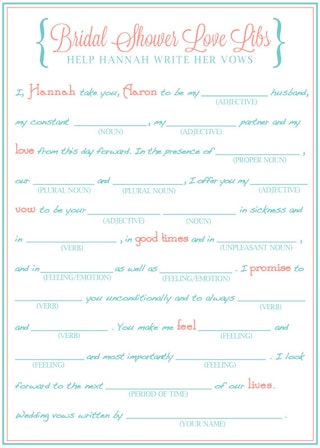 Bridal Shower Love Libs
HELP HANNAH WRITE HER VOWS
I, Hannah take you, Aaron to be my ____________ husband,
(ADJECTIVE)
my constant ____________, my ____________ partner and my
(NOUN) (ADJECTIVE)
love from this day forward. In the presence of ____________,
(PROPER NOUN)
our ____________ and ____________, I offer you my ____________
(PLURAL NOUN) (PLURAL NOUN) (ADJECTIVE)
vow to be your ____________ ____________ in sickness and
(ADJECTIVE) (NOUN)
in ____________, in good times and in ____________,
(VERB) (UNPLEASANT NOUN)
and in ____________ as well as ____________. I promise to
(FEELING/EMOTION) (FEELING/EMOTION)
____________ you unconditionally and to always ____________
(VERB) (VERB)
and ____________. You make me feel ____________ and
(VERB) (FEELING)
____________ and most importantly ____________. I look
(FEELING) (FEELING)
forward to the next ____________ of our lives.
(PERIOD OF TIME)
Wedding vows written by ____________.
(YOUR NAME)